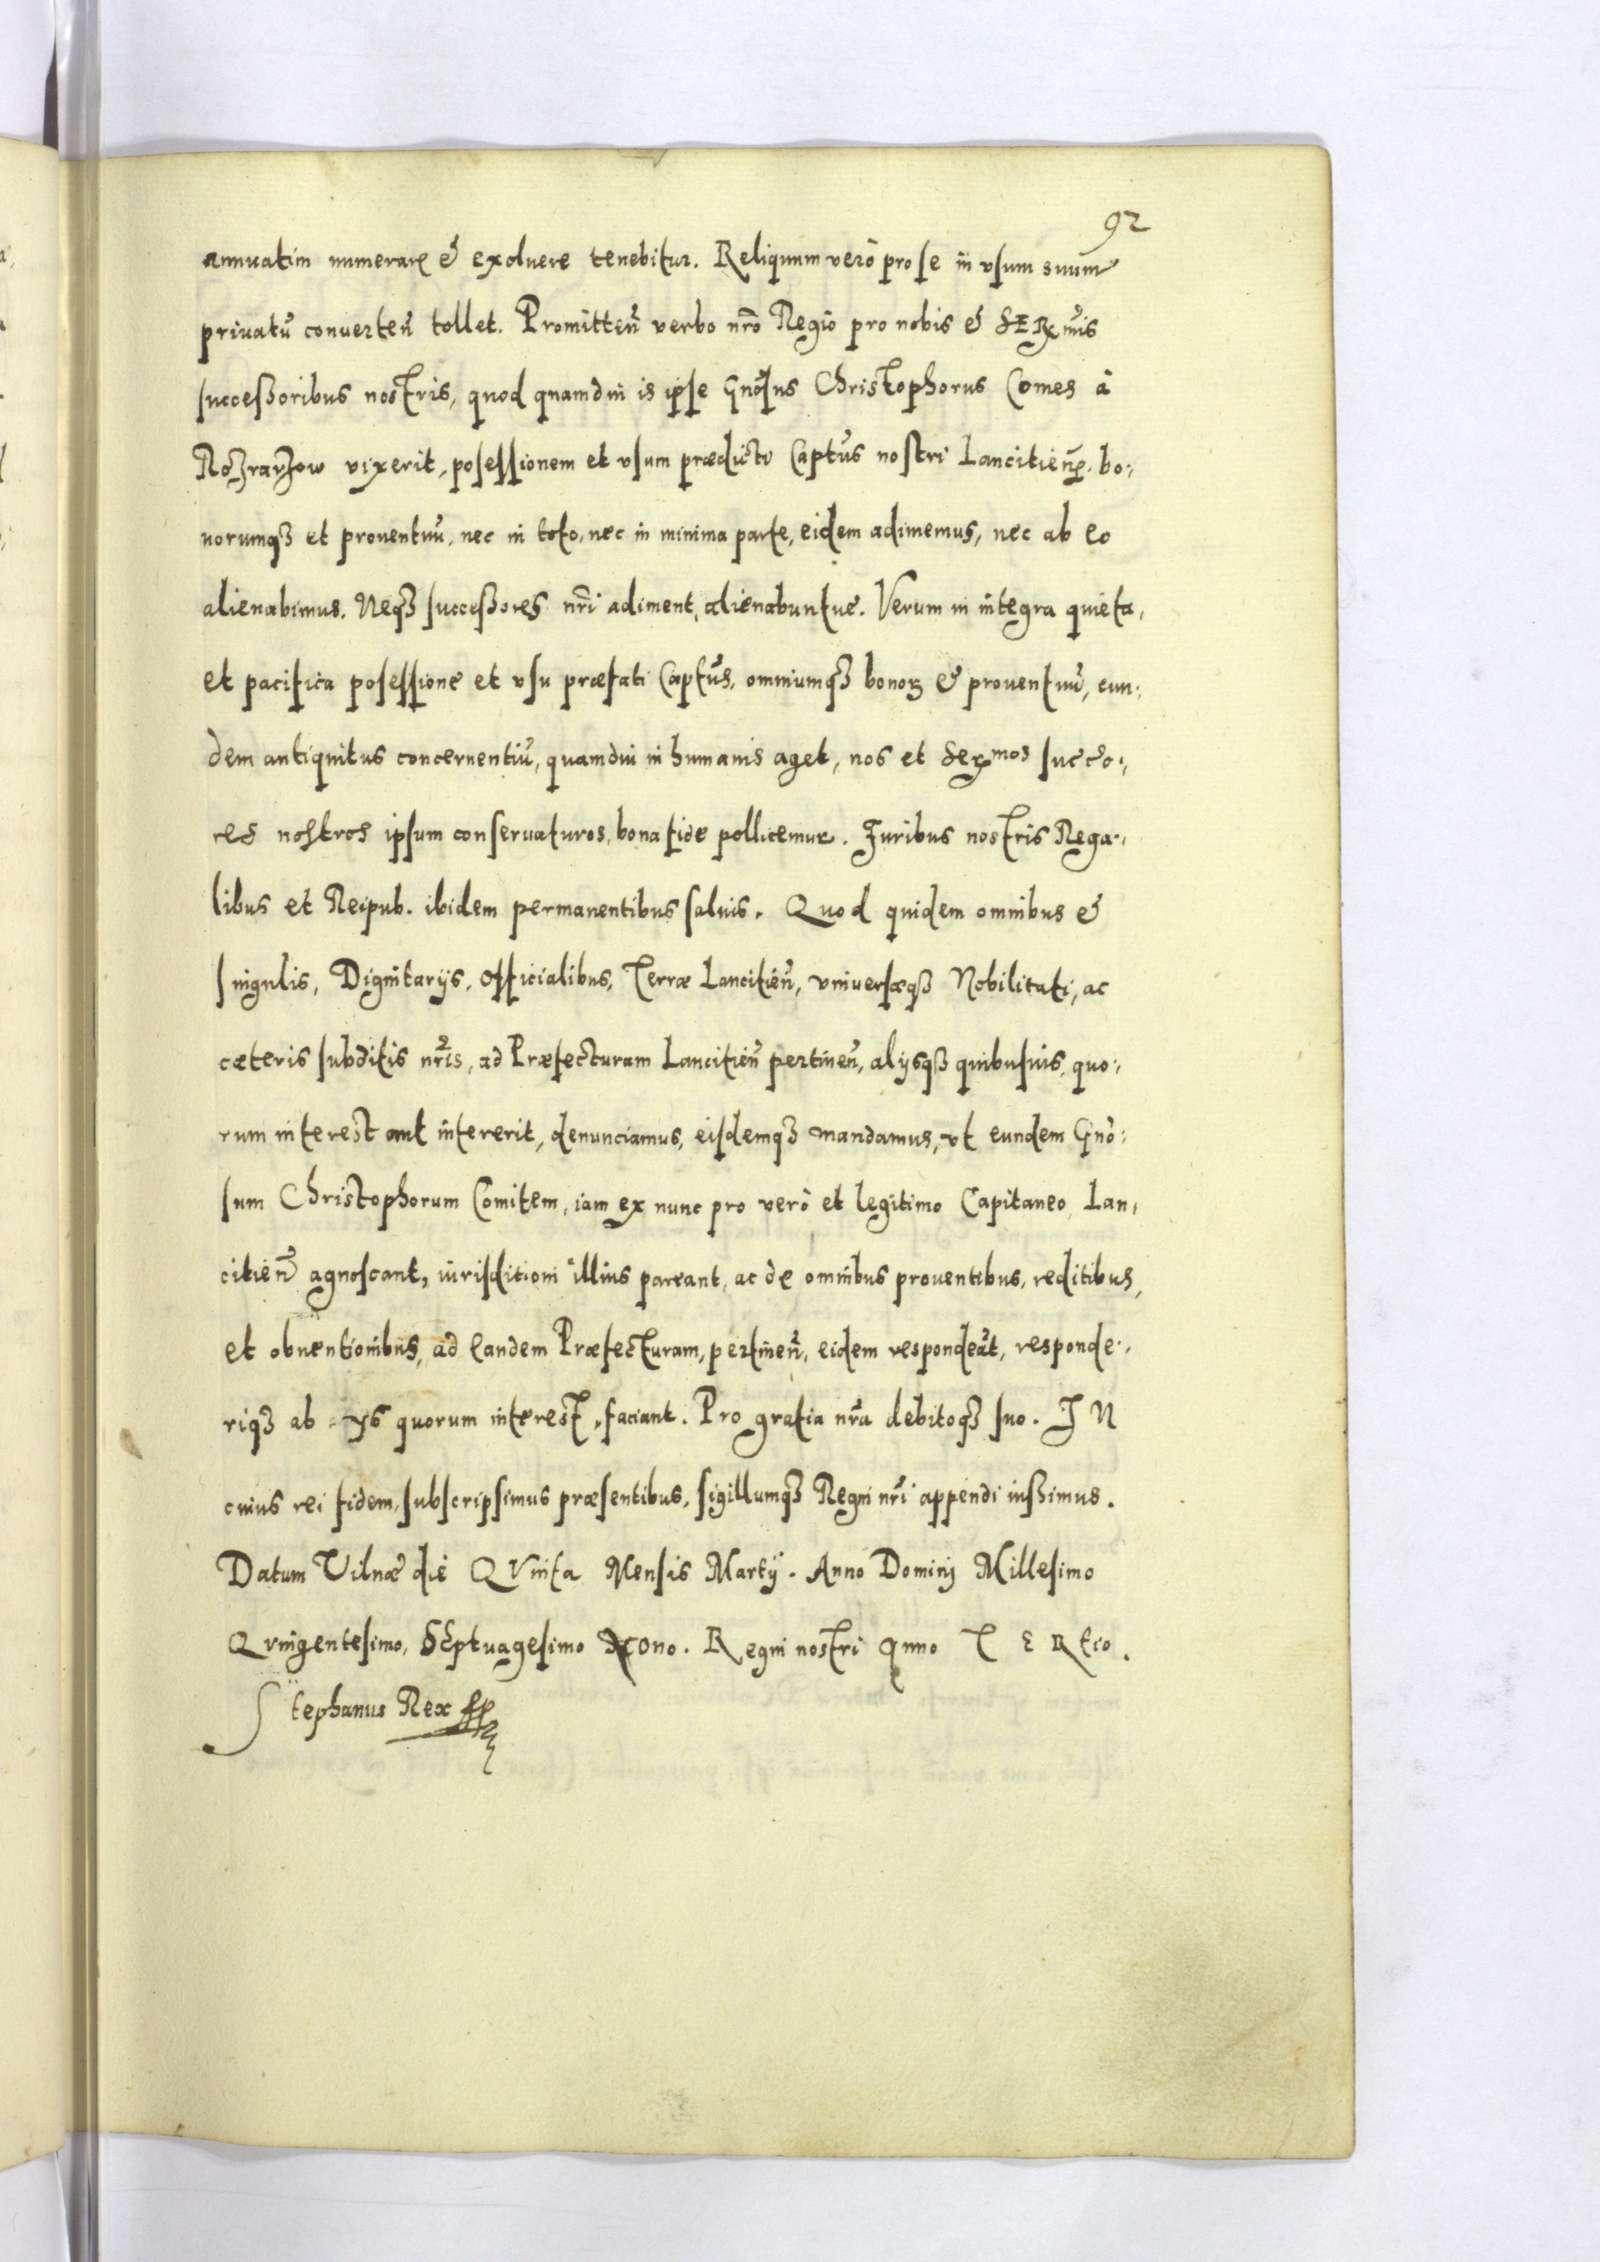 92
annuatim numerare & exoluere tenebitur. Reliquum verò pro se in vsum suum
priuatũ conuerteñ tollet. Promitteñ verbo nr̃o Regio pro nobis & SERmis
successoribus nostris, quod quamdiu is ipse Gnõsus Christophorus Comes à
Rozrarzow vixerit, possessionem et vsum prædicti Captũs nostri Lancitieñ. bo:
norumqȝ et prouentuũ, nec in toto, nec in minima parte, eidem adimemus, nec ab eo
alienabimus. Neqȝ successores nr̃i adiment, alienabuntue. Verum in integra quieta,
et pacifica possessione et vsu præfati Captũs, omniumqȝ bonoꝝ & prouentuũ, eun:
dem antiquitus concernentiũ, quamdiu in humanis aget, nos et Sermos succo:,
res nostros ipsum conseruaturos, bona fide pollicemur. Iuribus nostris Rega:,
libus et Reipub. ibidem permanentibus saluis. Quod quidem omnibus &
singulis, Dignitarijs, Officialibus, Terræ Lancitieñ, vniuersæqȝ Nobilitati, ac
cæteris subditis nr̃is, ad Præfecturam Lancitieñ pertineñ, alijsqȝ quibusuis, quo:,
rum interest aut intererit, denunciamus, eisdemqȝ mandamus, vt eundem Gnõ:
sum Christophorum Comitem, iam ex nunc pro verò et legitimo Capitaneo Lan,
citieñ agnoscant, iurisditioni illius pareant, ac de omnibus prouentibus, reditibus,
et obuentionibus, ad eandem Præfecturam, pertineñ, eidem respondeãt, responde:,
riqȝ ab ijs quorum interest, faciant. Pro gratia nr̃a debitoqȝ suo. IN
cuius rei fidem, subscripsimus præsentibus, sigillumqȝ Regni nr̃i appendi iussimus.
Datum Vilnæ die QVinta Mensis Martij. Anno Domini Millesimo
Qvingentesimo, SEptuagesimo Nono. Regni nostri Anno TERtio.
Stephanus Rex